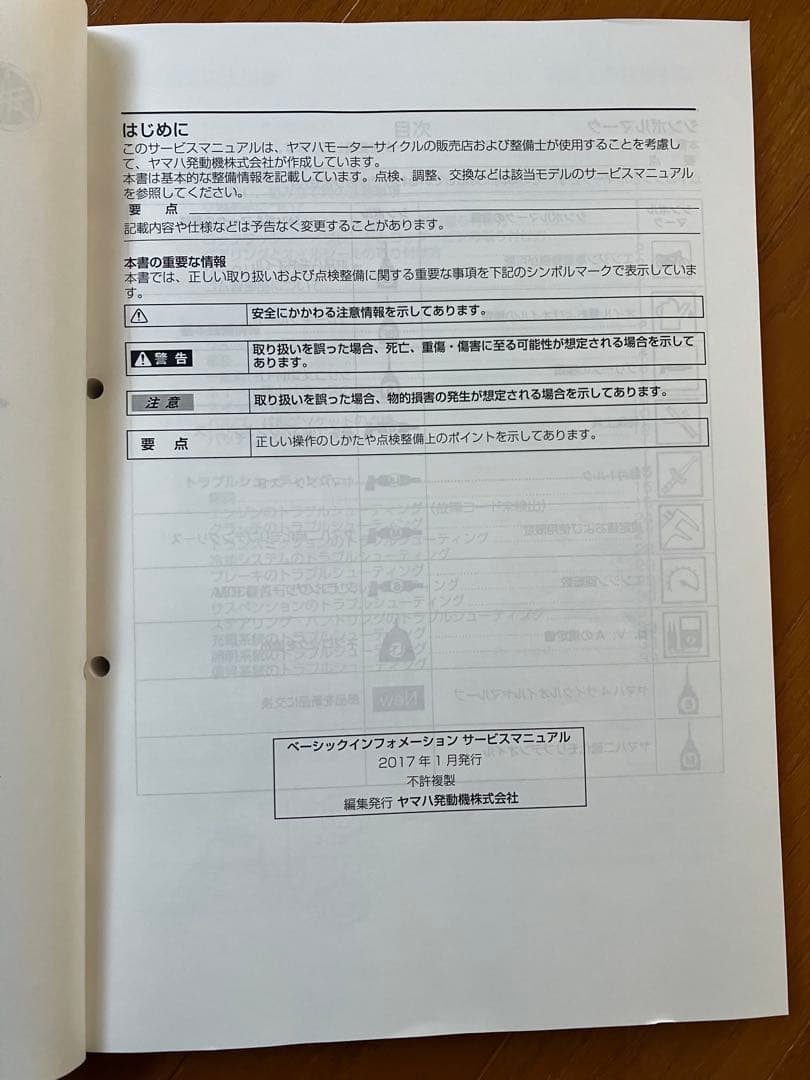 はじめに
このサービスマニュアルは、ヤマハモーターサイクルの販売店および整備士が使用することを考慮し
て、ヤマハ発動機株式会社が作成しています。
本書は基本的な整備情報を記載しています。点検、調整、交換などは該当モデルのサービスマニュアル
を参照してください。
要 点
記載内容や仕様などは予告なく変更することがあります。
本書の重要な情報
本書では、正しい取り扱いおよび点検整備に関する重要な事項を下記のシンボルマークで表示していま
す。
安全にかかわる注意情報を示してあります。
警告
取り扱いを誤った場合、死亡、重傷・傷害に至る可能性が想定される場合を示して
あります。
注意
取り扱いを誤った場合、物的損害の発生が想定される場合を示してあります。
要 点
正しい操作のしかたや点検整備上のポイントを示してあります。
ベーシックインフォメーション サービスマニュアル
2017年1月発行
不許複製
編集発行 ヤマハ発動機株式会社